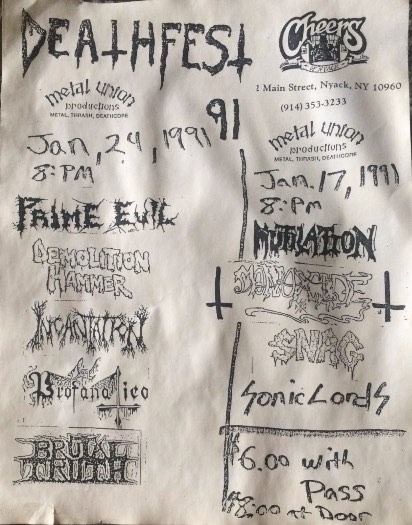 DEATHFEST
91
Cheers
Main Street, Nyack, NY 10960
(914) 353-3233
metal union
productions
METAL, THRASH, DEATHCORE
Jan, 24, 1991
8:PM
PRIME EVIL
DEMOLITION
HAMMER
INCANTATION
Profanatica
BRUTAL
TRUTH
metal union
productions
METAL, THRASH, DEATHCORE
Jan. 17, 1991
8:PM
MUTILATION
SNAG
Sonic Lords
$6.00 with
Pass
$8.00 at Door